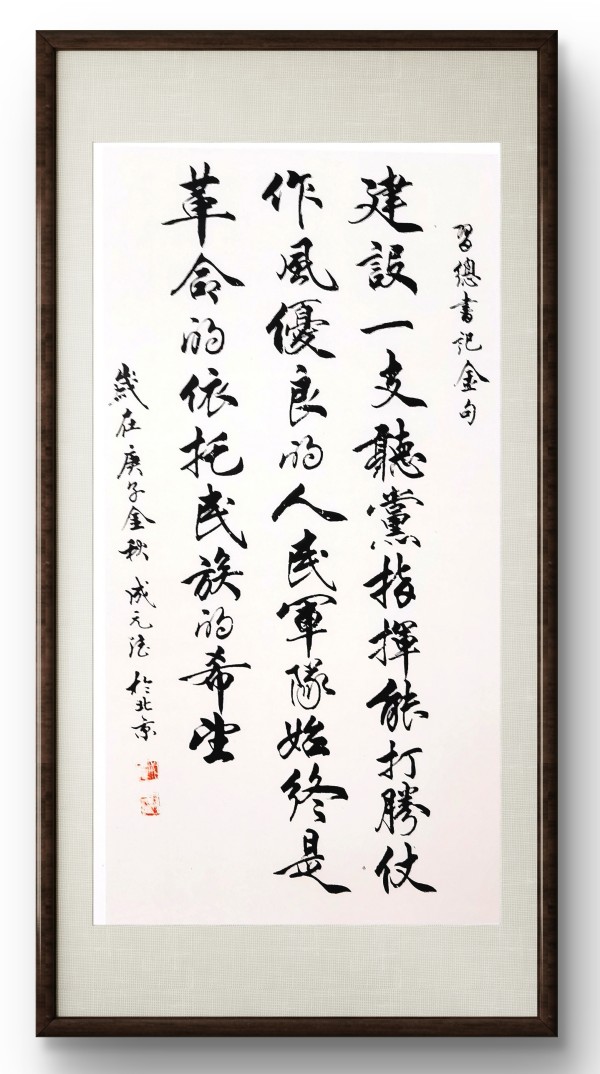 習總書記金句
建設一支聽黨指揮能打勝仗
作風優良的人民軍隊始終是
革命的依托民族的希望
歲在庚子金秋 成元 於北京